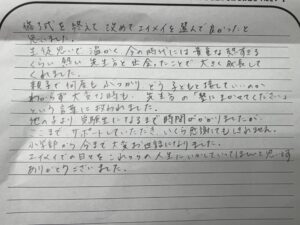 修了式を終えて 改めてエイメイを選んで良かったと
思いました。
生徒思いで温かく、今の時代には貴重な怒する
くらい熱い先生方と出会えたことで大きく成長して
くれました。
親子で何度もぶつかり どう子どもと接していいのか
わからず大変な時も、先生方の「塾にまかせてください」
という言葉に救われました。
他の子より受験生になるまで時間がかかりましたが
ここまでサポートしていただき、いくら感謝してもしきれません。
小学部から今まで大変お世話になりました。
エイメイでの日々をこれからの人生にいかしていってほしいと思います
ありがとうございました。